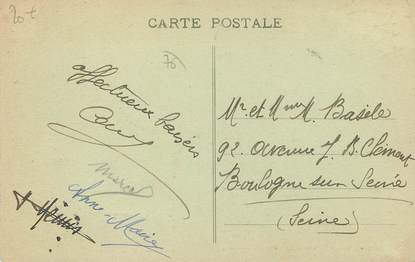 20 t
CARTE POSTALE
70
affectueux baisers
Marcel
Anne-Marie
Mr. et Mme M. Basele
92. Avenue J. B. Clément
Boulogne sur Seine
(Seine)